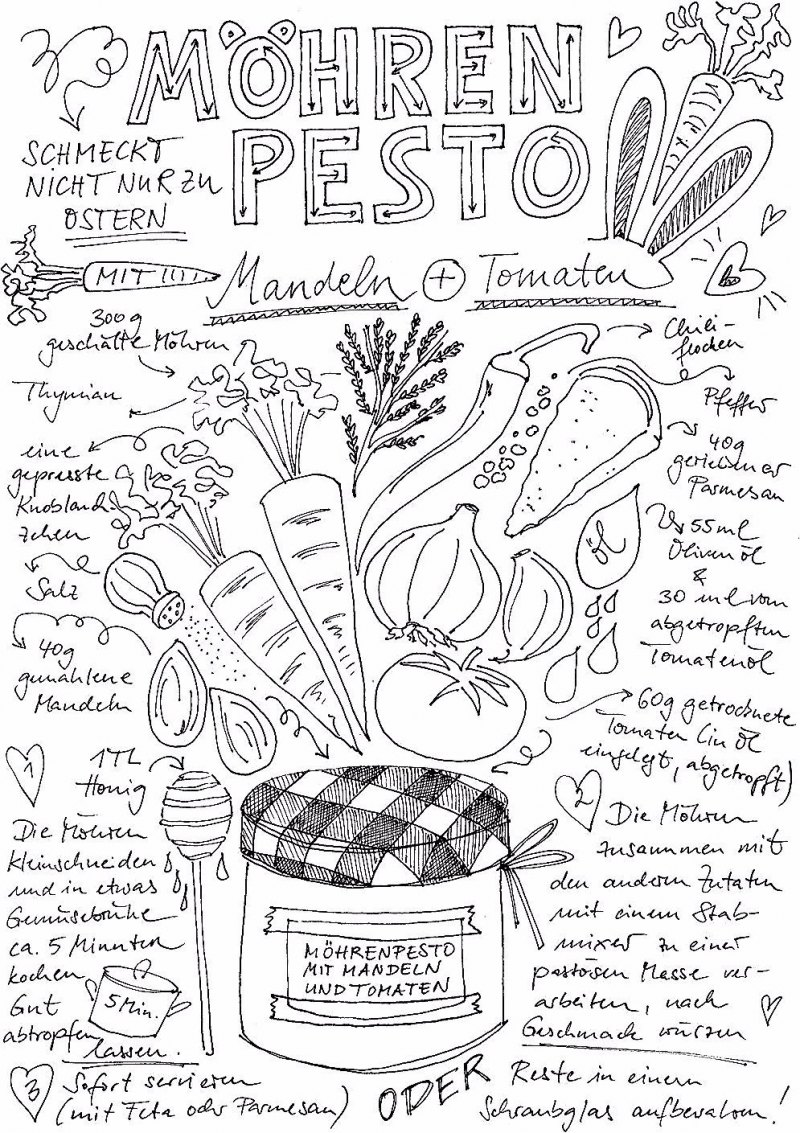 MÖHREN
PESTO
SCHMECKT
NICHT NUR ZU
OSTERN
MIT
Mandeln + Tomaten
300g
geschälte Möhren
Thymian
eine
gepresste
Knoblauch-
zehen
Salz
40g
gemahlene
Mandeln
1TL
Honig
Chili-
flocken
Pfeffer
40g
geriebener
Parmesan
Öl
55ml
Olivenöl
&
30 ml vom
abgetropften
Tomatenöl
60g getrocknete
Tomaten (in Öl
eingelegt, abgetropft)
1
Die Möhren
kleinschneiden
und in etwas
Gemüsebrühe
ca. 5 Minuten
kochen
Gut
abtropfen
lassen.
5 Min.
2
Die Möhren
zusammen mit
den anderen Zutaten
mit einem Stab-
mixer zu einer
pastösen Masse ver-
arbeiten, nach
Geschmack würzen
MÖHRENPESTO
MIT MANDELN
UND TOMATEN
3
Sofort servieren
(mit Feta oder Parmesan)
ODER
Reste in einem
Schraubglas aufbewahren!